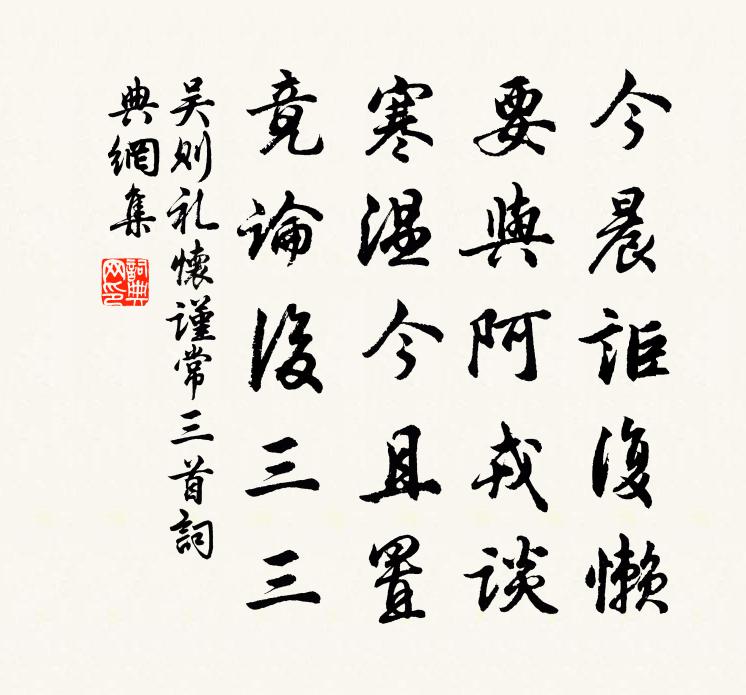 今晨詎復懶
要與阿戎談
寒溫今且置
竟論後三三
吴则礼懷謹常三首詞
典網集
詞典
网印